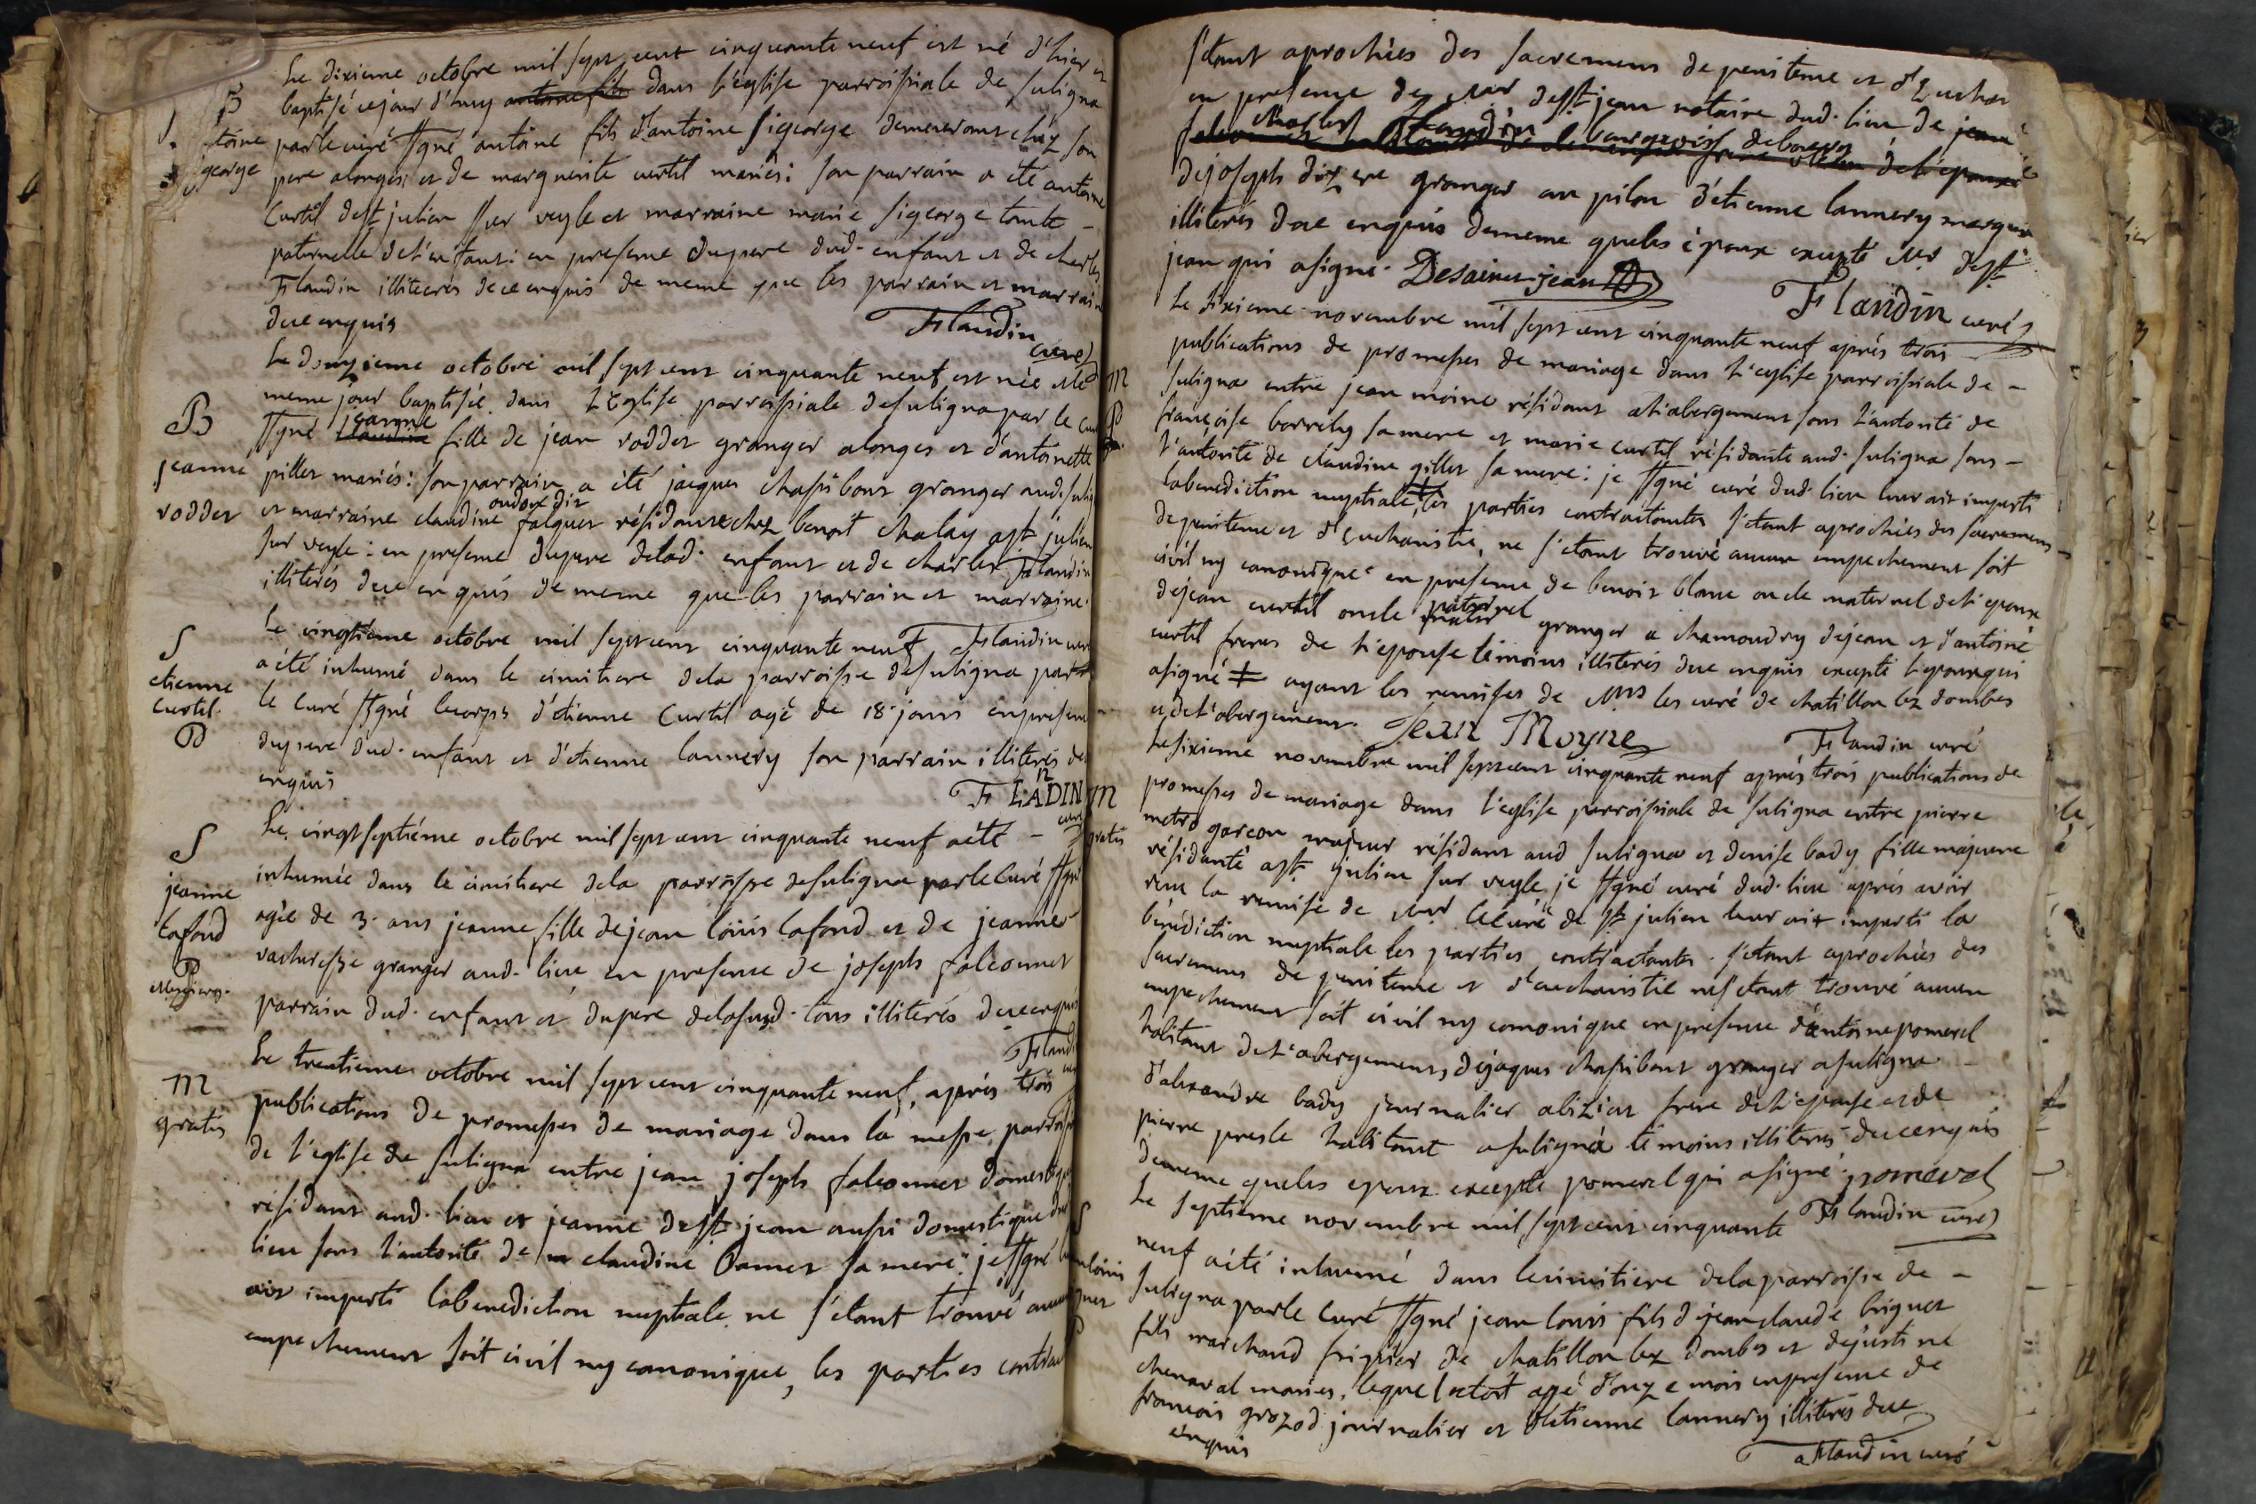 Le dixieme octobre mil sept cent cinquante neuf est né d'hier et
B
baptisé cejour d'huy antoine fils dans l'église parroissiale de suligna
toine
parle curé ssgné antoine fils d'antoine sigeorge demeurant chez son
george
pere alonges et de marguerite curtil mariés: son parrain a été antoine
Curtil de st julien sur veyle et marraine marie sigeorge tante -
paternelle de l'enfant: en presence dupere dud. enfant et de charles
Flandin illiterés dece enquis de meme que les parrain et marraine
dece enquis
Flandin
curé
Le douzieme octobre mil sept cent cinquante neuf est née et le
meme jour baptisée dans L'Eglise parroissiale desuligna par le curé
B
ssgné claudine jeanne fille de jean voddet granger alonges et d'antoinette
jeanne
pillet mariés: son parrain a été jaques chassibout granger aud. suligna
voddet
et marraine claudine falquet oudox dit résidante chez benoit chalay a st julien
sur veyle: en presence dupere delad. enfant et de charles Flandin
illiterés dece enquis de meme que les parrain et marraine.
Flandin curé
S
Le vingtieme octobre mil sept cent cinquante neuf
etienne
a été inhumé dans le cimitiere dela parroisse desuligna par
Curtil.
le Curé ssgné lecorps d'etienne Curtil agé de 18. jours enpresence
B
dupere dud. enfant et d'etienne lannery son parrain illiterés de
enquis
FLADIN
n
curé
S
Le vingt septiéme octobre mil sept cent cinquante neuf aété -
jeanne
inhumée dans le cimitiere dela parroisse desuligna parle Curé ssgné
Lafond
agée de 3. ans jeanne fille dejean loüis lafond et de jeanne
vacheresse granger aud. lieu, en presence de joseph falconnet
parrain dud. enfant et dupere delasusd. tous illiterés dece enquis
Fland
M
Le trentieme octobre mil sept cent cinquante neuf, aprés trois
gratis
publications de promesses de mariage dans la messe parroissi
de l'église de suligna entre jean joseph falconnet domestique
résidant aud. lieu et jeanne de st jean aussi domestique dud
lieu sous l'autorité de claudine Damet sa mere: je ssgné leur
aÿ imparti labenediction nuptiale ne s'étant trouvé aucun
empechement soit civil ny canonique, les parties contrac
s'étant aprochées des sacremens de penitence et d'Euchar
en presence de Mr dest jean notaire dud. lieu de jean
Charles Flandin bourgeois debourg
dejoseph dixere granger au pilon d'etienne lannery marguis
illiterés dece enquis dememe queles époux excepté Mr dest
jean qui asigné. Desaint jean
Flandin curé
M
Le sixieme novembre mil sept cent cinquante neuf aprés trois
publications de promesses de mariage dans l'eglise parroissiale de -
suligna entre jean moine résidant al'abergement sous l'autorité de
françoise borrely sa mere et marie curtil résidante aud. suligna sous -
l'autorité de claudine gillet sa mere: je ssgné curé dud. lieu leur aÿ imparti
labenediction nuptiale, les parties contractantes s'étant aprochées des sacremens
depenitence et d'Eucharistie, ne s'étant trouvé aucun empechement soit
civil ny canonique en presence de benoit blanc oncle maternel de l'epoux
dejean curtil oncle paternel granger a chamondry dejean et d'antoine
curtil freres de l'epouse témoins illiterés dece enquis excepté l'epoux qui
asigné ≠ ayant les remises de Mrs les curé de chatillon lez dombes
et de l'abergement. Jean Moyne
Flandin curé
M
gratis
Le sixieme novembre mil sept cent cinquante neuf aprés trois publications de
promesses de mariage dans l'eglise parroissiale de suligna entre pierre
metro garcon majeur résidant aud suligna et denise bady fille majeure
résidante a st julien sur veyle, je ssgné curé dud. lieu aprés avoir
reçu la remise de Mr lecuré de st julien leur aÿ imparti la
bénédiction nuptiale les parties contractantes. s'étant aprochées des
sacremens de penitence et d'eucharistie nes'étant trouvé aucun
empechement soit civil ny canonique enpresence d'antoine pomerel
habitant de l'abergement, dejaques chassibout granger asuligna. -
d'alexandre bady journalier alizat frere de l'epouse et de
pierre presle habitant asuligna témoins illiterés dece enquis
dememe queles epoux excepté pomerel qui asigné. pomeral
Flandin curé
S
Le septieme novembre mil sept cent cinquante
neuf aété inhumé dans lecimitiere dela parroisse de -
suligna parle curé ssgné jean louis fils dejean claude briguet
fils marchand fripier de chatillon lez dombes et dejustine
chenaval mariés, lequel etoit agé d'onze mois enpresence de
françois grozod journalier et d'etienne lannery illiterés dece
enquis
Flandin curé